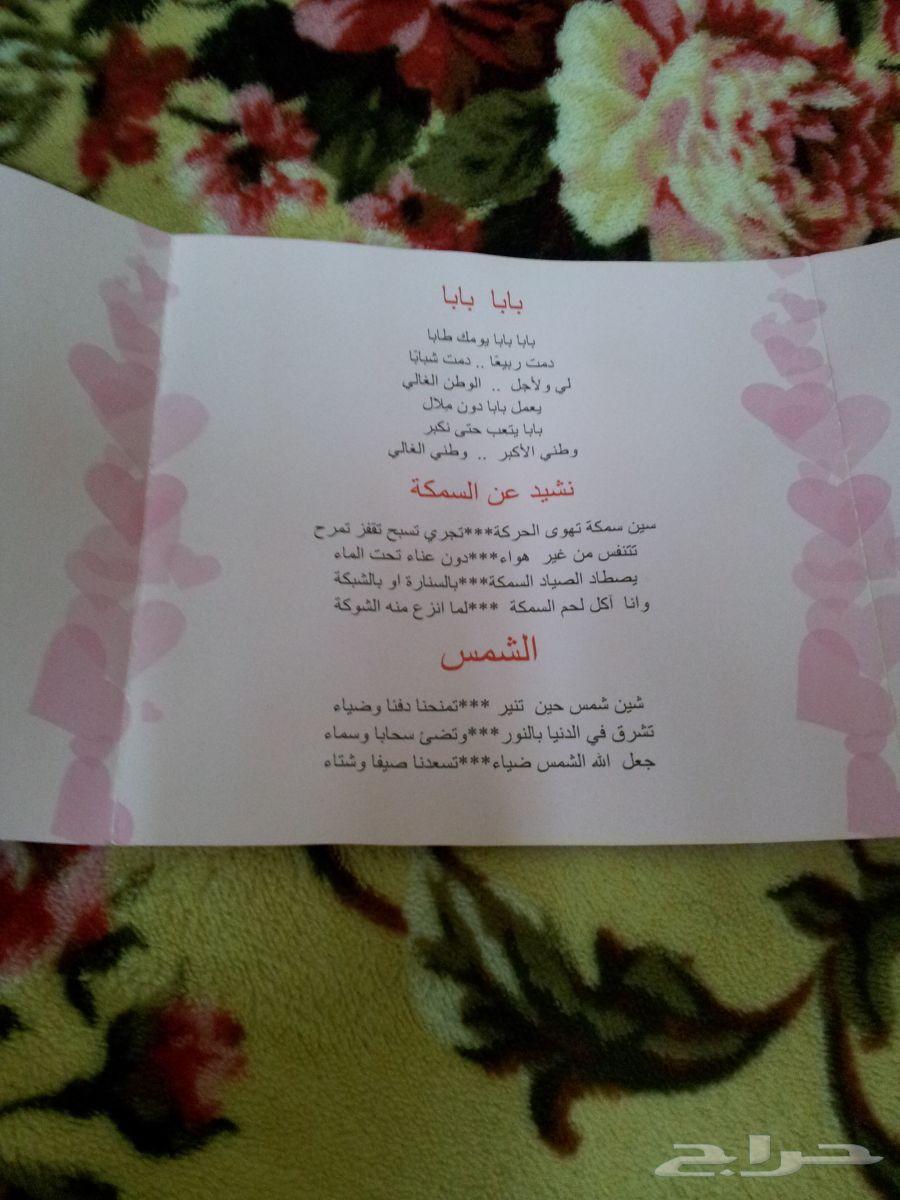 بابا بابا
بابا بابا يومك طابا
دمت ربيعًا .. دمت شبابًا
لي ولأجل .. الوطن الغالي
يعمل بابا دون مِلال
بابا يتعب حتى نكبر
وطني الأكبر .. وطني الغالي
نشيد عن السمكة
سين سمكة تهوى الحركة***تجري تسبح تقفز تمرح
تتنفس من غير هواء***دون عناء تحت الماء
يصطاد الصياد السمكة***بالسنارة او بالشبكة
وانا آكل لحم السمكة ***لما انزع منه الشوكة
الشمس
شين شمس حين تنير ***تمنحنا دفئا وضياء
تشرق في الدنيا بالنور***وتضئ سحابا وسماء
جعل الله الشمس ضياء***تسعدنا صيفا وشتاء
حراج